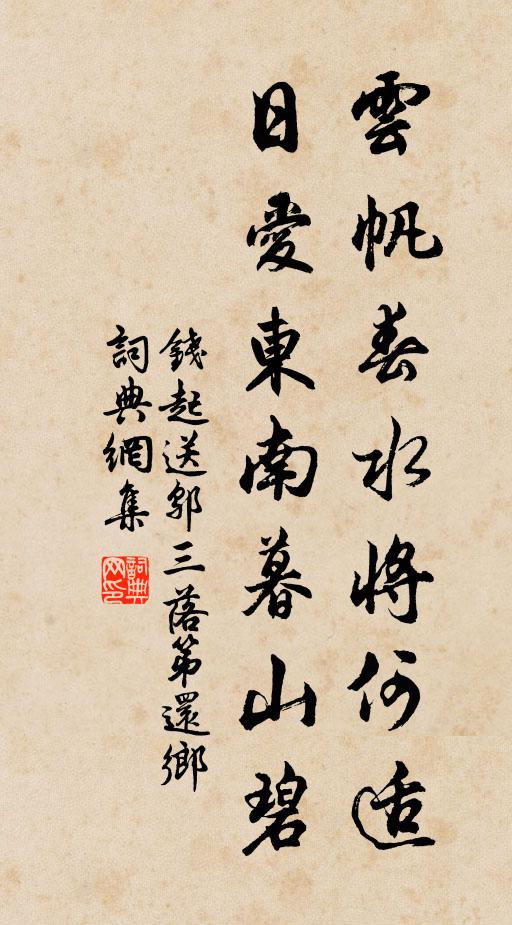 雲帆春水將何適
日愛東南暮山碧
錢起送鄔三落第還鄉
詞典網集
詞典网印